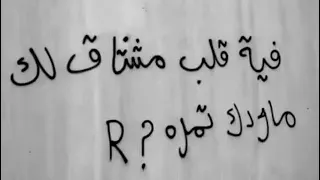 فية قلب مشتاق لك
ماودك تمره ? R